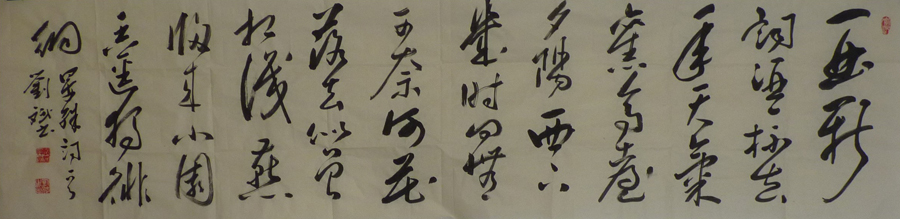 一曲新
詞酒一杯去
年天氣
舊亭臺
夕陽西下
幾時回無
可奈何花
落去似曾
相識燕
歸來小園
香徑獨徘
徊
晏殊詞
劉